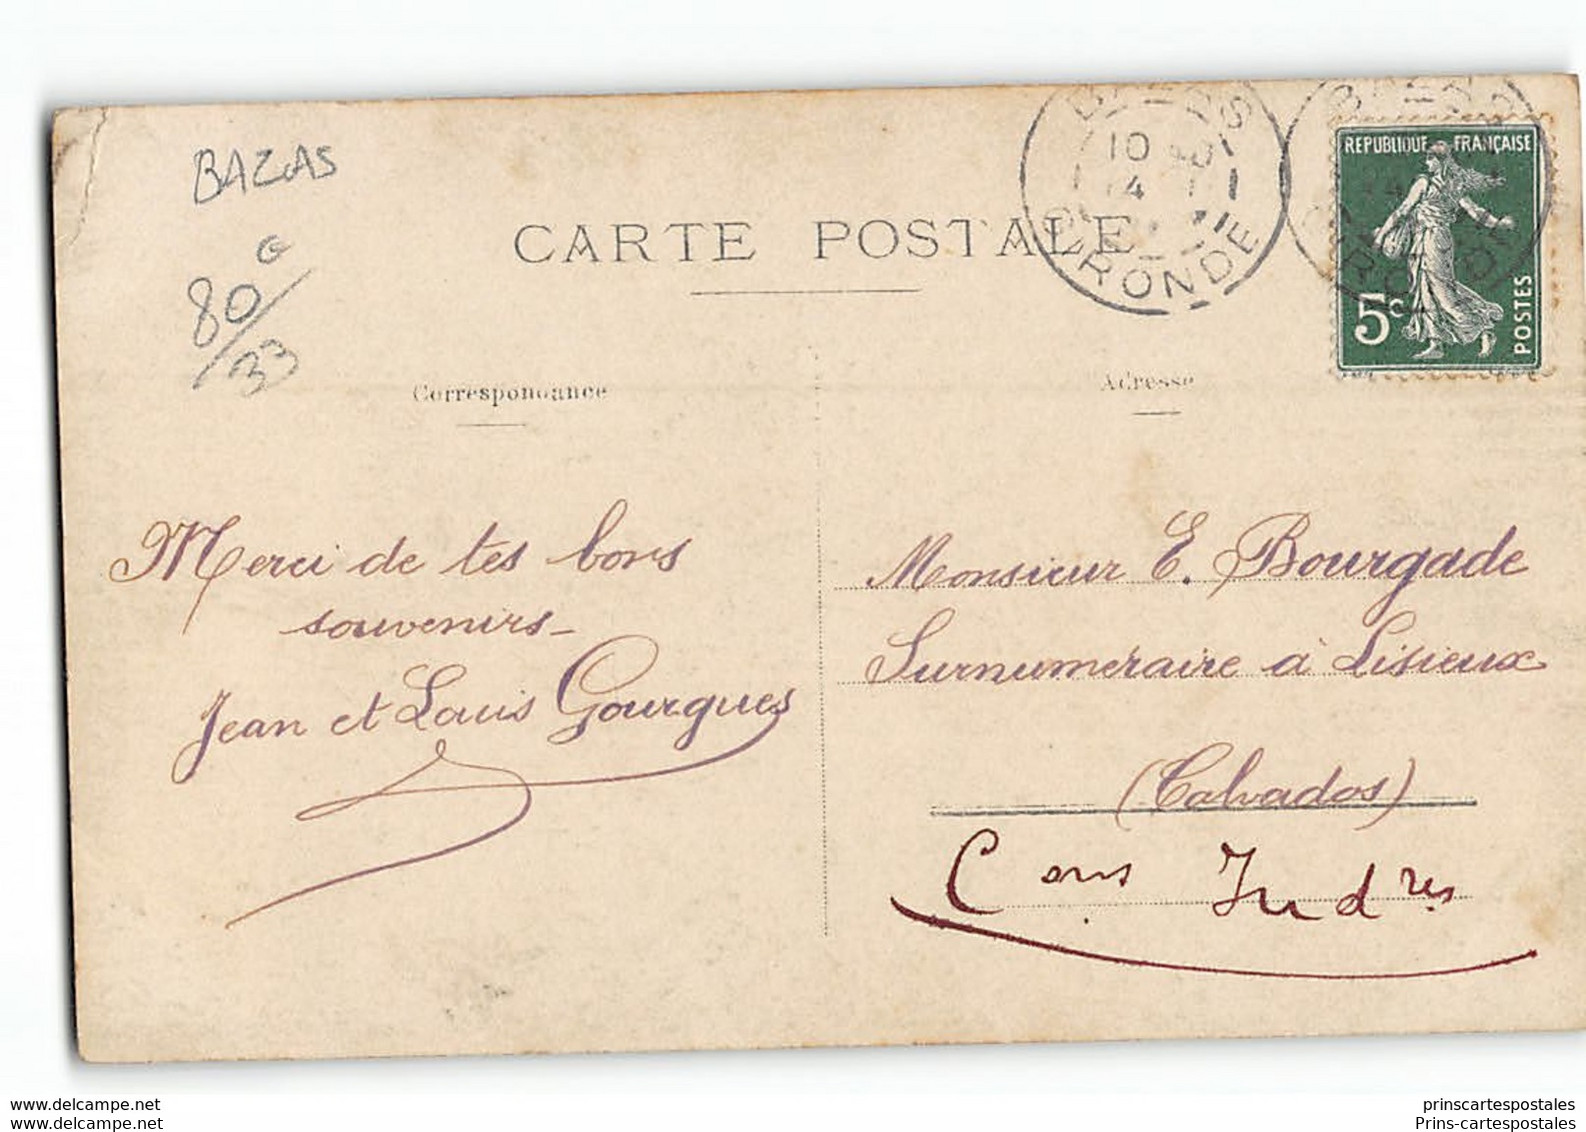 BAZAS
80 G
33
CARTE POSTALE
BAZAS
10
GIRONDE
REPUBLIQUE FRANÇAISE
5c
POSTES
Correspondance
Adresse
Merci de tes bons
souvenirs_
Jean et Louis Gourgues
Monsieur E. Bourgade
Surnumeraire à Lisieux
(Calvados)
Cons Ind res
www.delcampe.net
prinscartespostales
Prins-cartespostales